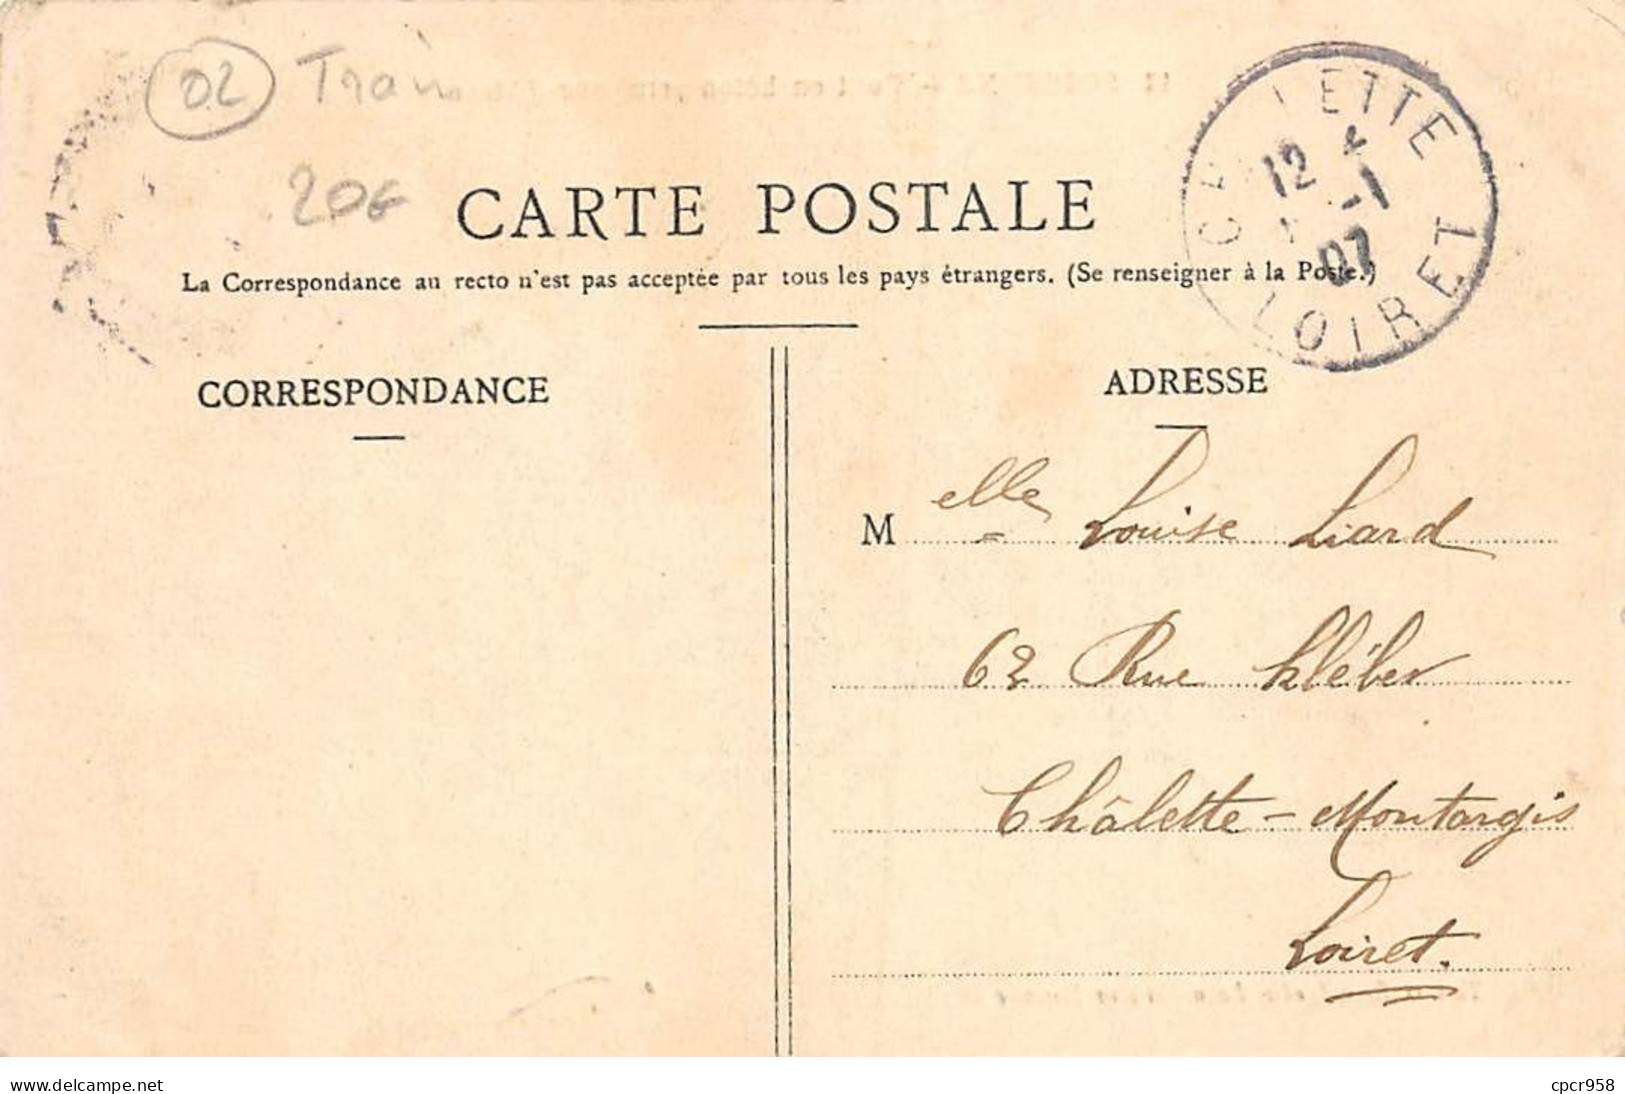 02 Train
20€
CARTE POSTALE
La Correspondance au recto n'est pas acceptée par tous les pays étrangers. (Se renseigner à la Poste.)
LETTE
12
-1
07
LOIRET
CORRESPONDANCE
ADRESSE
Melle Louise Liard
62 Rue Kléber
Châlette-Montargis
Loiret.
www.delcampe.net
cpcr958